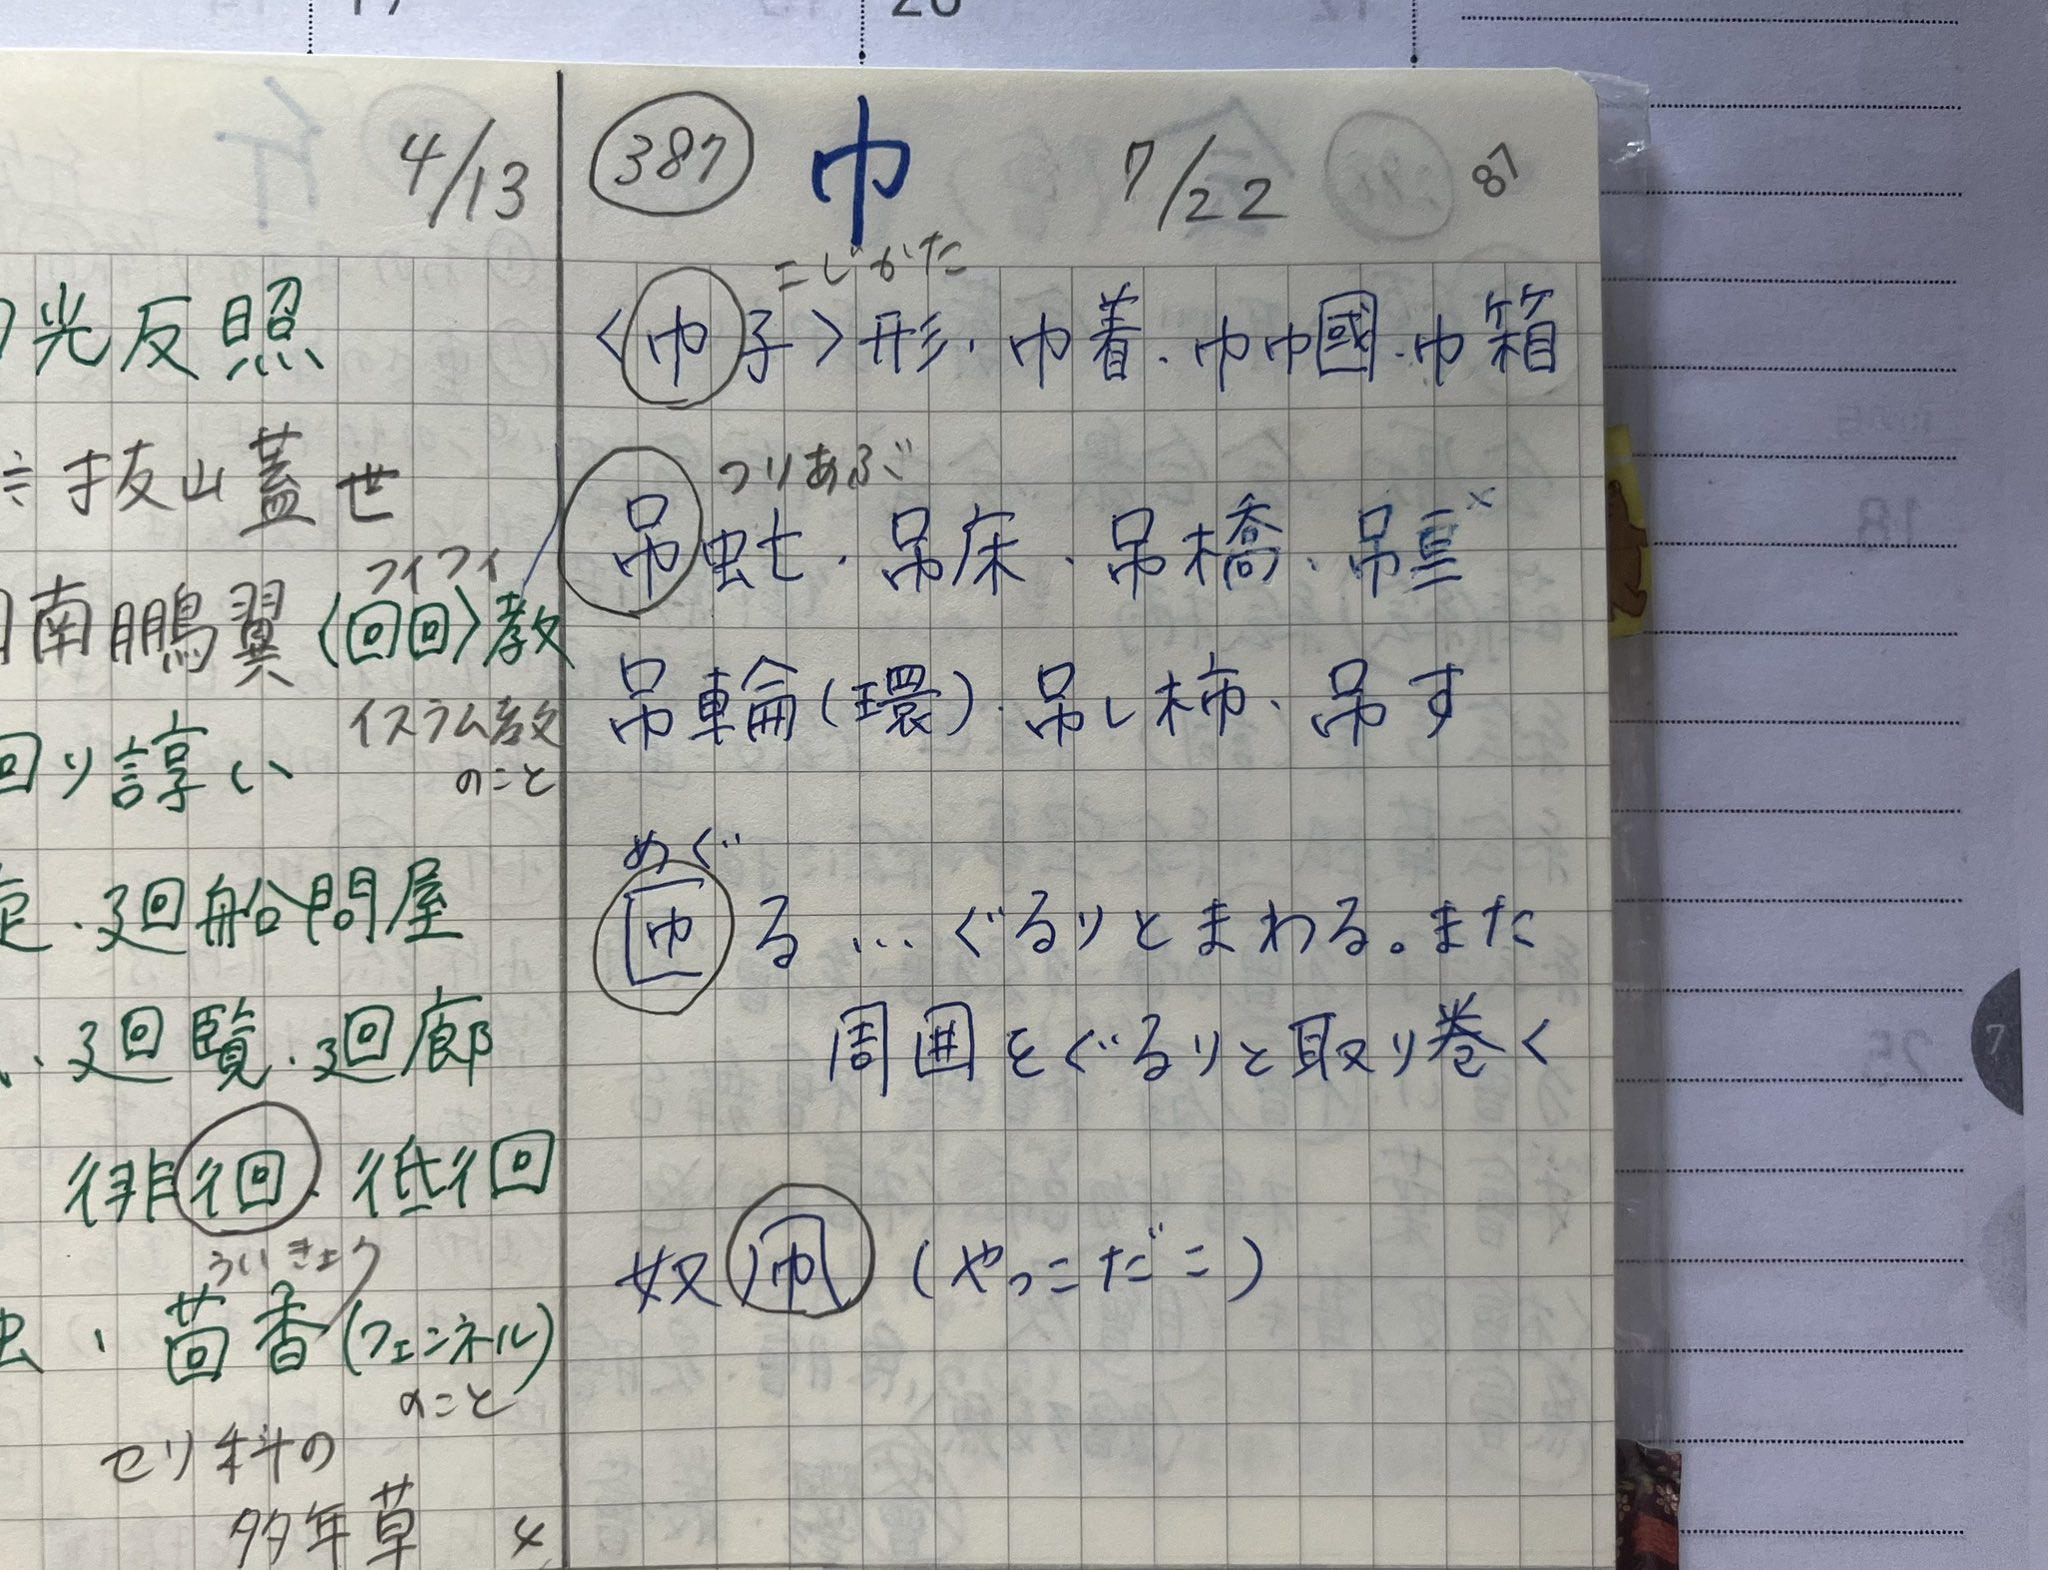 17
20
4/13
光反照
≒抜山蓋世
フイフイ
南鵬翼〈回回〉教
イスラム教
のこと
回り諄い
・廻船問屋
・廻覧・廻廊
徘徊・低徊
ういきょう
・茴香(フェンネル)
のこと
セリ科の
多年草
387 巾 7/22 87
こじかた
〈巾子〉形・巾着・巾幗・巾箱
つりあぶ
吊虻・吊床・吊橋・吊
吊輪(環)・吊し柿・吊す
めぐ
匝る…ぐるりとまわる。また
周囲をぐるりと取り巻く
奴凧(やっこだこ)
7